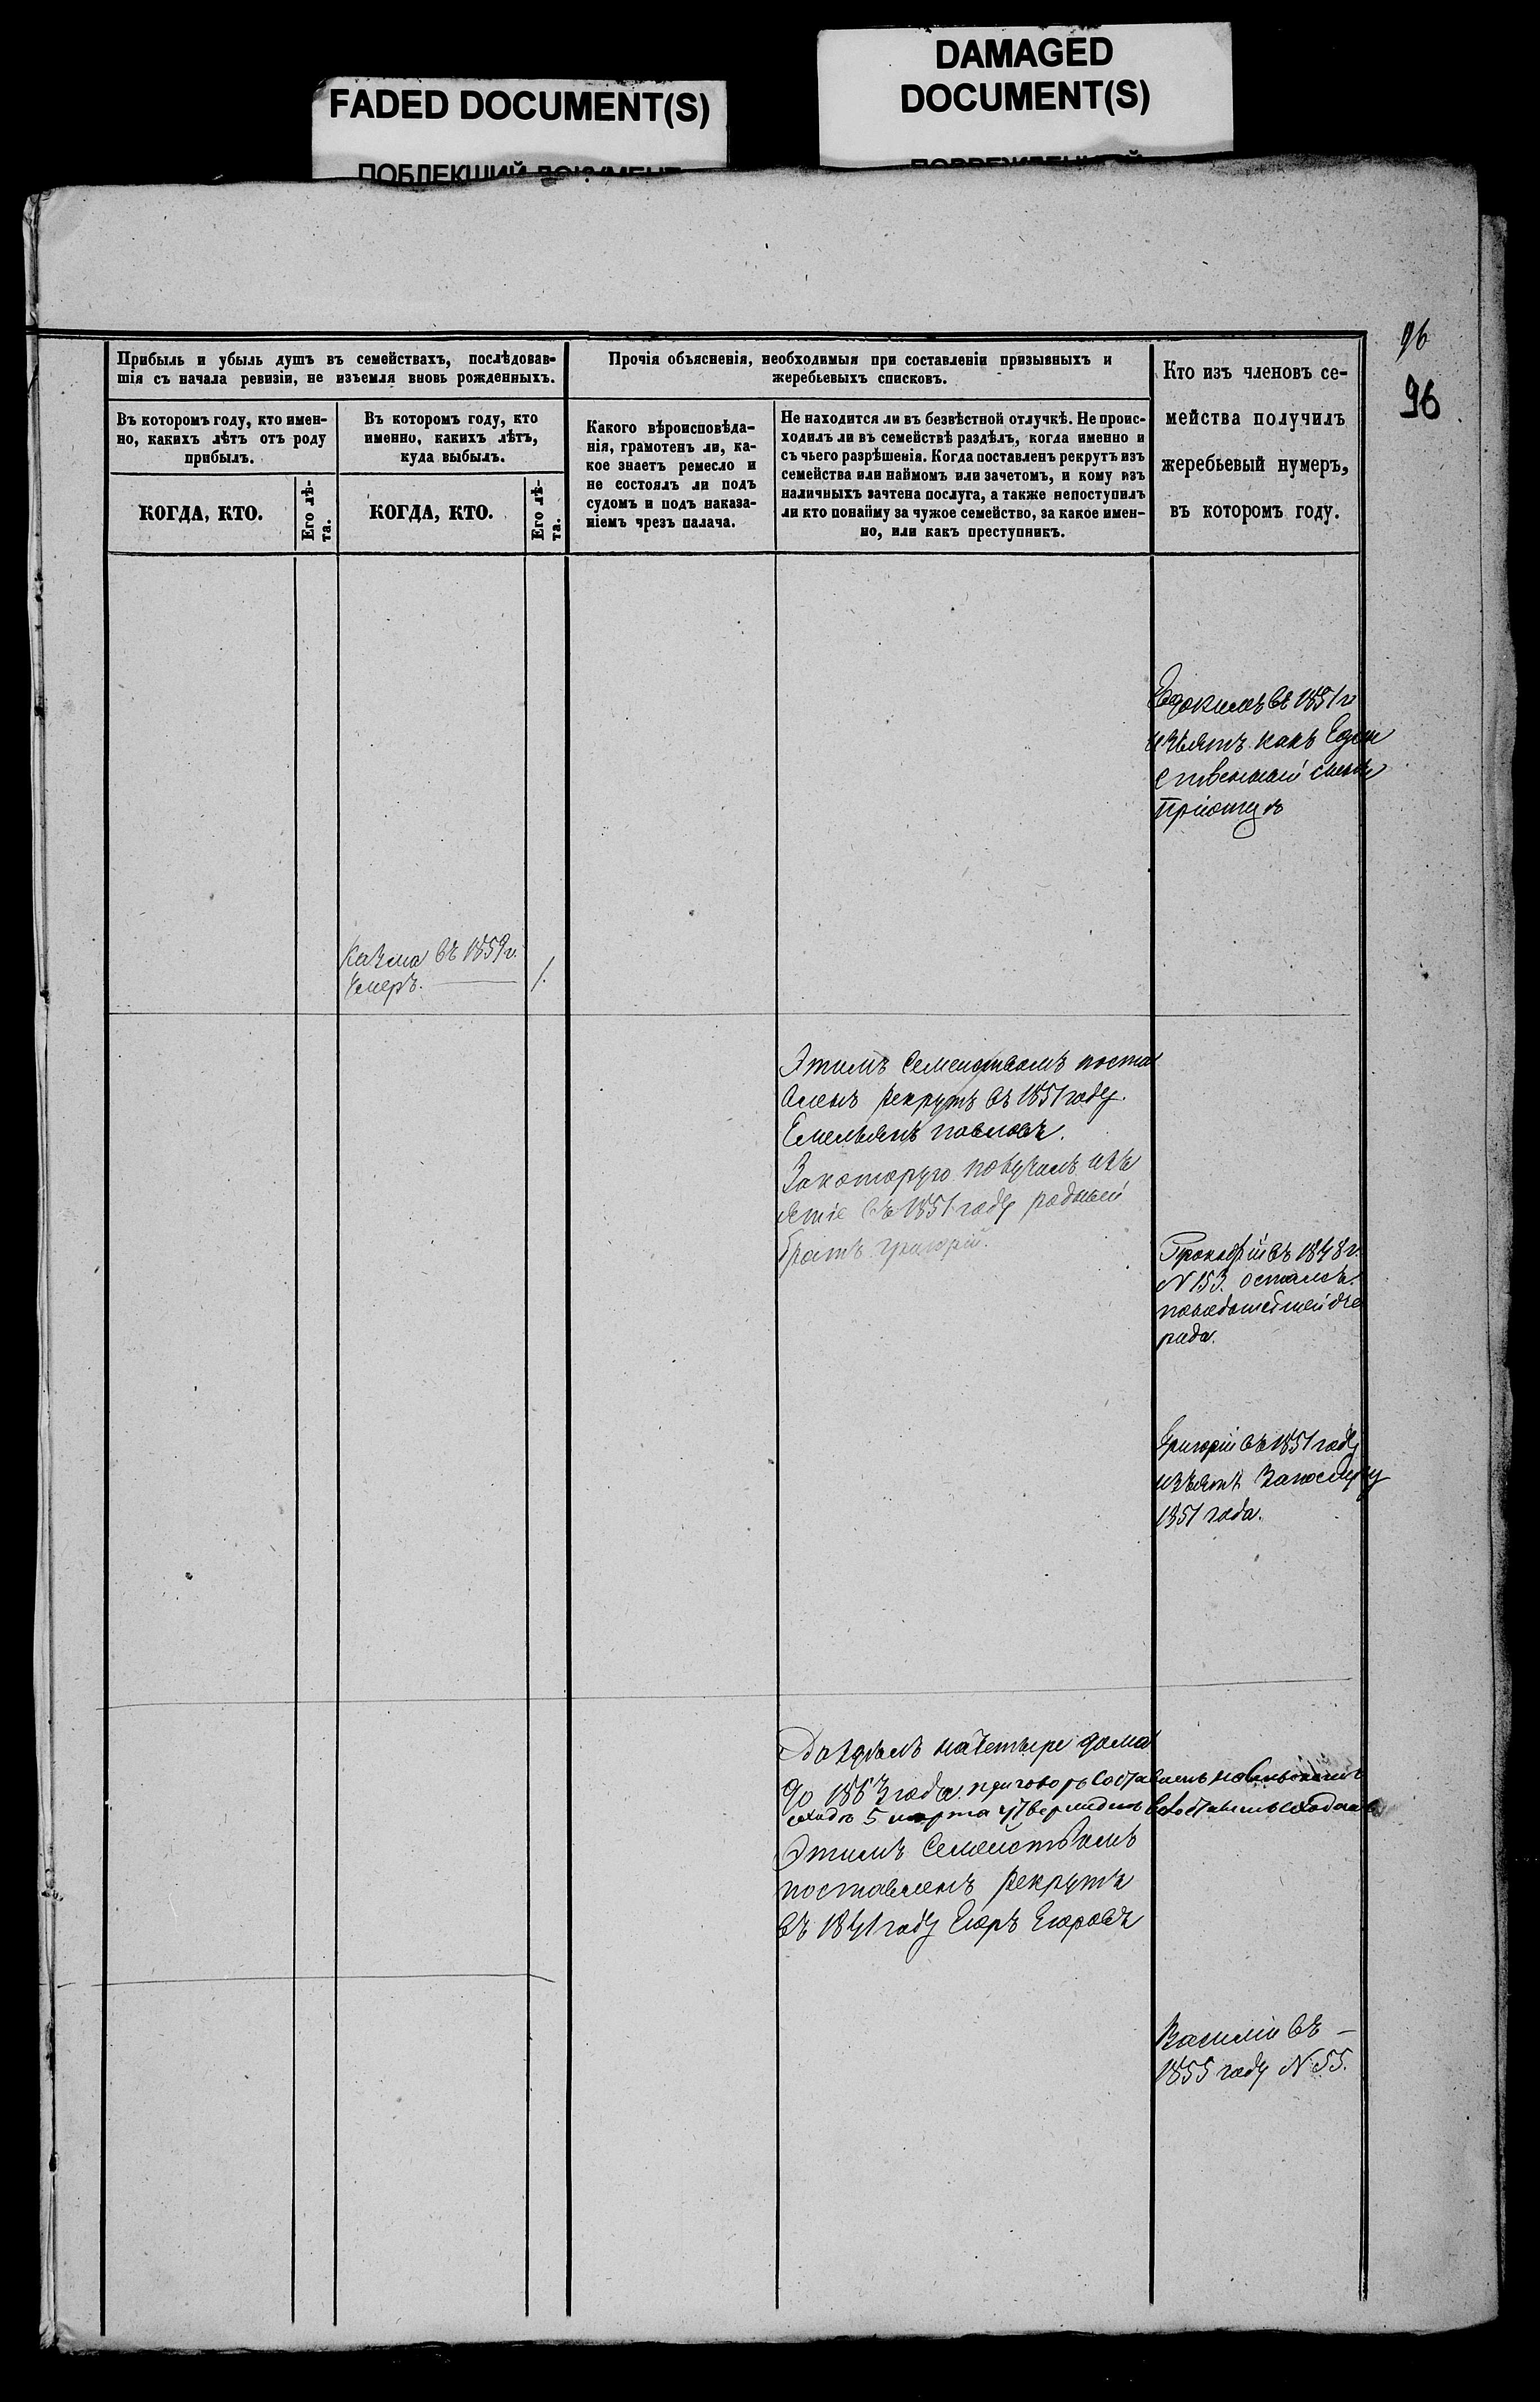 FADED DOCUMENT(S)
DAMAGED
DOCUMENT(S)
ПОБЛЕКШИЙ ДОКУМЕНТ
96
96
Прибыль и убыль душъ въ семействахъ, послѣдовав-
шія съ начала ревизіи, не изъемля вновь рожденныхъ.
Прочія объясненія, необходимыя при составленіи призывныхъ и
жеребьевыхъ списковъ.
Кто изъ членовъ се-
мейства получилъ
жеребьевый нумеръ,
въ которомъ году.
Въ которомъ году, кто имен-
но, какихъ лѣтъ отъ роду
прибылъ.
Въ которомъ году, кто
именно, какихъ лѣтъ,
куда выбылъ.
Какого вѣроисповѣда-
нія, грамотенъ ли, ка-
кое знаетъ ремесло и
не состоялъ ли подъ
судомъ и подъ наказа-
ніемъ чрезъ палача.
Не находится ли въ безвѣстной отлучкѣ. Не проис-
ходилъ ли въ семействѣ раздѣлъ, когда именно и
съ чьего разрѣшенія. Когда поставленъ рекрутъ изъ
семейства или наймомъ или зачетомъ, и кому изъ
наличныхъ зачтена послуга, а также непоступилъ
ли кто понайму за чужое семейство, за какое имен-
но, или какъ преступникъ.
КОГДА, КТО.
Его лѣ-
та.
КОГДА, КТО.
Его лѣ-
та.
Евдокимъ въ 1851 г
изъятъ какъ Един
ственный сынъ
приотцѣ
въ 1859 г.
умеръ. 1.
Этимъ Семействомъ постав
ленъ рекрутъ въ 1851 году
Емельянъ павловъ.
Закоторую получилъ изъ
ятіе въ 1851 году родный
братъ григорій.
Прокофій въ 1848 г.
N 153. остался
рида.
Григорій въ 1851 году
изъятъ Запослугу
1851 года.
Раздѣлъ начетыре дома
до 1863 года. приговоръ Составленъ
сходъ 5 марта
Этимъ Семействомъ
поставленъ рекрутъ
въ 1841 году Егоръ Егоровъ
Василій въ
1855 году N 55.